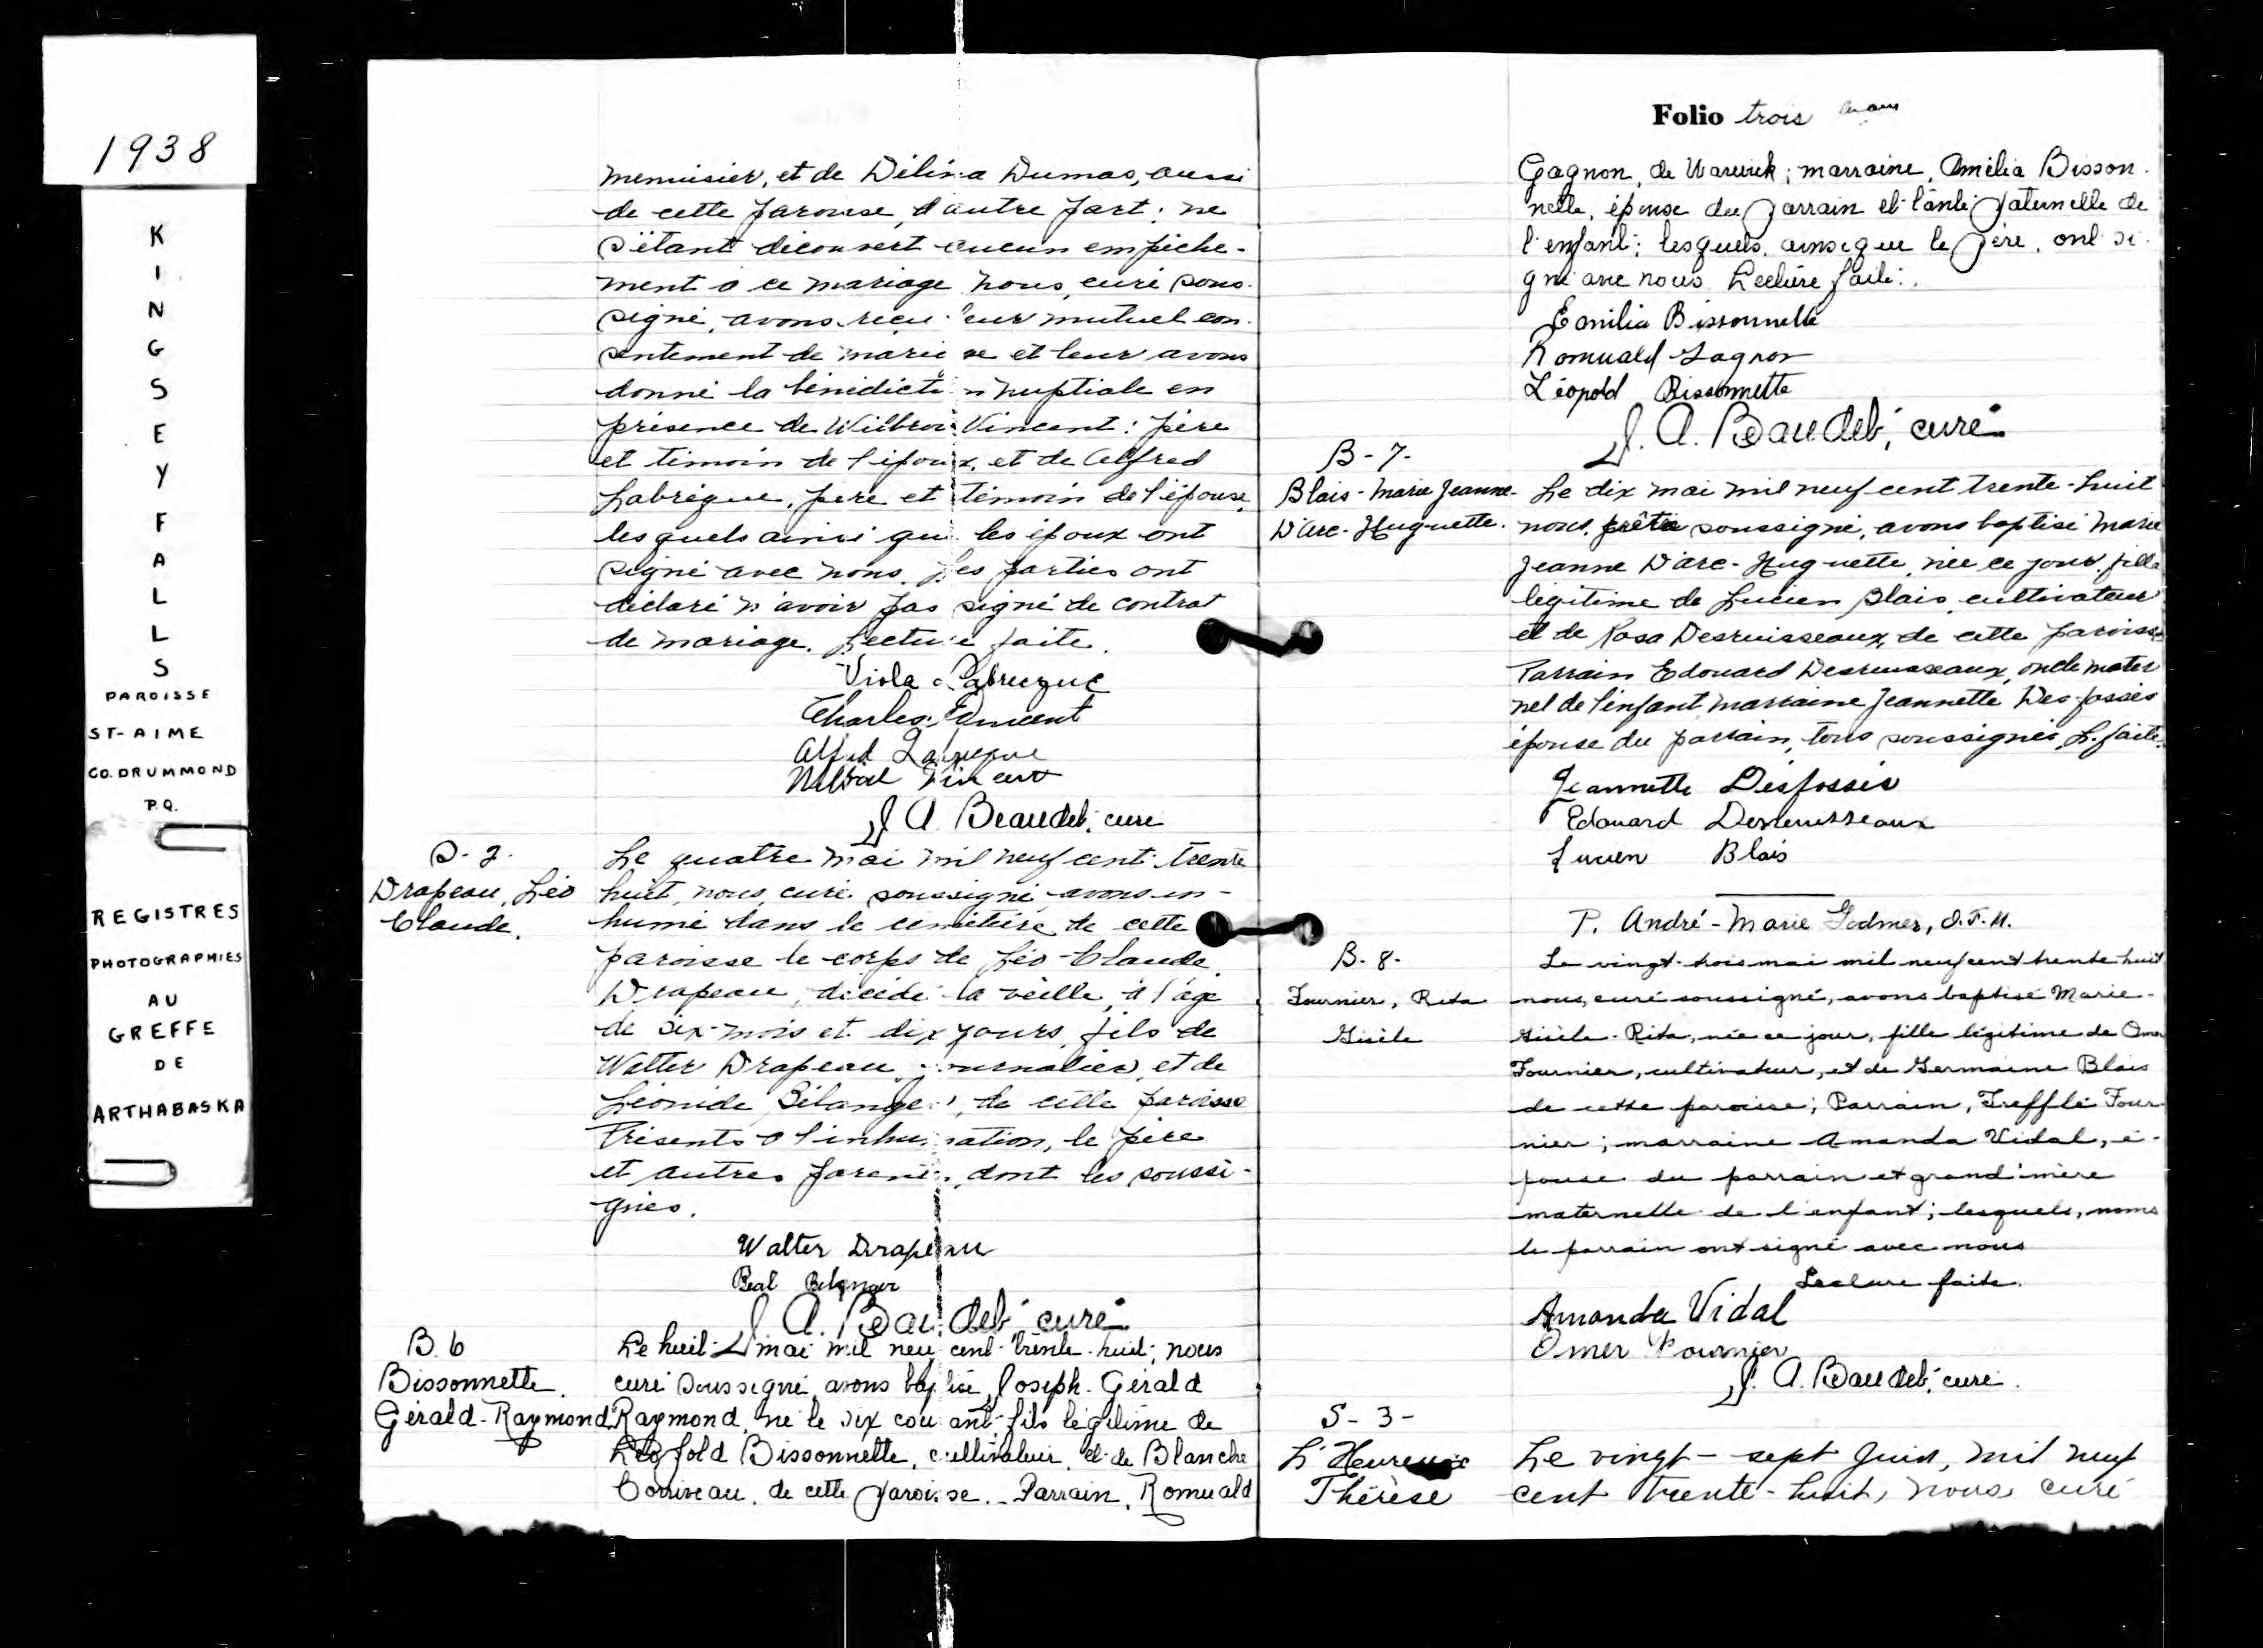 1938
KINGSEY FALLS
PAROISSE
ST-AIME
CO. DRUMMOND
P.Q.
REGISTRES
PHOTOGRAPHIES
AU
GREFFE
DE
ARTHABASKA
menuisier, et de Délina Dumas, aussi
de cette paroisse, d'autre part; ne
s'étant découvert aucun empêche-
ment à ce mariage nous, curé sous-
signé, avons reçu leur mutuel con-
sentement de mariage et leur avons
donné la bénédiction nuptiale en
présence de Wilbroi Vincent: père
et témoin de l'époux, et de Alfred
Labrèque, père et témoin de l'épouse,
lesquels ainsi que les époux ont
signé avec nous. Les parties ont
déclaré n'avoir pas signé de contrat
de mariage. Lecture faite.
Viola Labrecque
Charles Vincent
Alfred Labrecque
Vincent
J. A. Beaudet, curé
S-2-
Drapeau, Léo
Claude.
Le quatre mai mil neuf cent trente
huit, nous, curé soussigné avons in-
humé dans le cimetière de cette
paroisse le corps de Léo-Claude
Drapeau, décédé la veille, à l'âge
de six mois et dix jours, fils de
Walter Drapeau, journalier, et de
Léonide Bélanger, de cette paroisse
Présents à l'inhumation, le père
et autres parents, dont les soussi-
gnés.
Walter Drapeau
Réal Belanger
J. A. Beaudet, curé
B. 6
Bissonnette.
Gérald-Raymond
Le huit mai mil neuf cent trente-huit, nous
curé soussigné, avons baptisé Joseph-Gérald
Raymond, né le six courant, fils légitime de
Léopold Bissonnette, cultivateur, et de Blanche
Corriveau, de cette paroisse. - Parrain, Romuald
Folio trois
Gagnon, de Warwick; marraine, Amélia Bisson-
nette, épouse du parrain et tante paternelle de
l'enfant; lesquels, ainsi que le père, ont si-
gné avec nous Lecture faite.
Emilia Bissonnette
Romuald Gagnon
Léopold Bissonnette
J. A. Beaudet, curé
B-7-
Blais-Marie Jeanne-
D'arc-Huguette.
Le dix mai mil neuf cent trente-huit
nous, prêtre soussigné, avons baptisé Marie
Jeanne D'arc-Huguette, née ce jour, fille
légitime de Lucien Blais, cultivateur
et de Rosa Desruisseaux, de cette paroisse
Parrain Edouard Desruisseaux, oncle mater
nel de l'enfant, marraine Jeannette Desfossés
épouse du parrain, tous soussignés, L. faite.
Jeannette Desfossés
Edouard Desruisseaux
Lucien Blais
P. André-Marie Godmer, O.F.M.
B-8-
Fournier, Rita
Gisèle
Le vingt-trois mai mil neuf cent trente huit
nous, curé soussigné, avons baptisé Marie-
Gisèle-Rita, née ce jour, fille légitime de Omer
Fournier, cultivateur, et de Germaine Blais
de cette paroisse; Parrain, Trefflé Four-
nier; marraine Amanda Vidal, é-
pouse du parrain et grand'mère
maternelle de l'enfant; lesquels, moins
le parrain ont signé avec nous
Lecture faite.
Amanda Vidal
Omer Fournier
J. A. Beaudet, curé.
S-3-
L'Heureux
Thérèse
Le vingt-sept Juin, mil neuf
cent trente-huit, nous curé